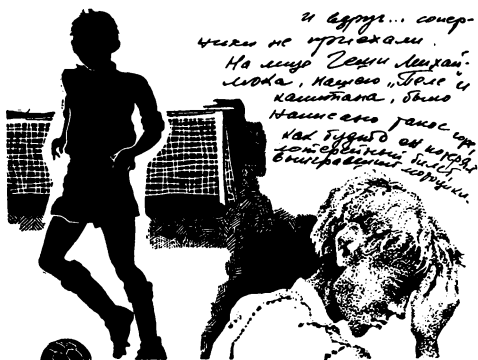 и вдруг... сопер-
ники не приехали.
На лице Геши Михай-
люка, нашего „Пеле" и
капитана, было
написано такое горе,
как будто он потерял
лотерейный билет,
выигравший